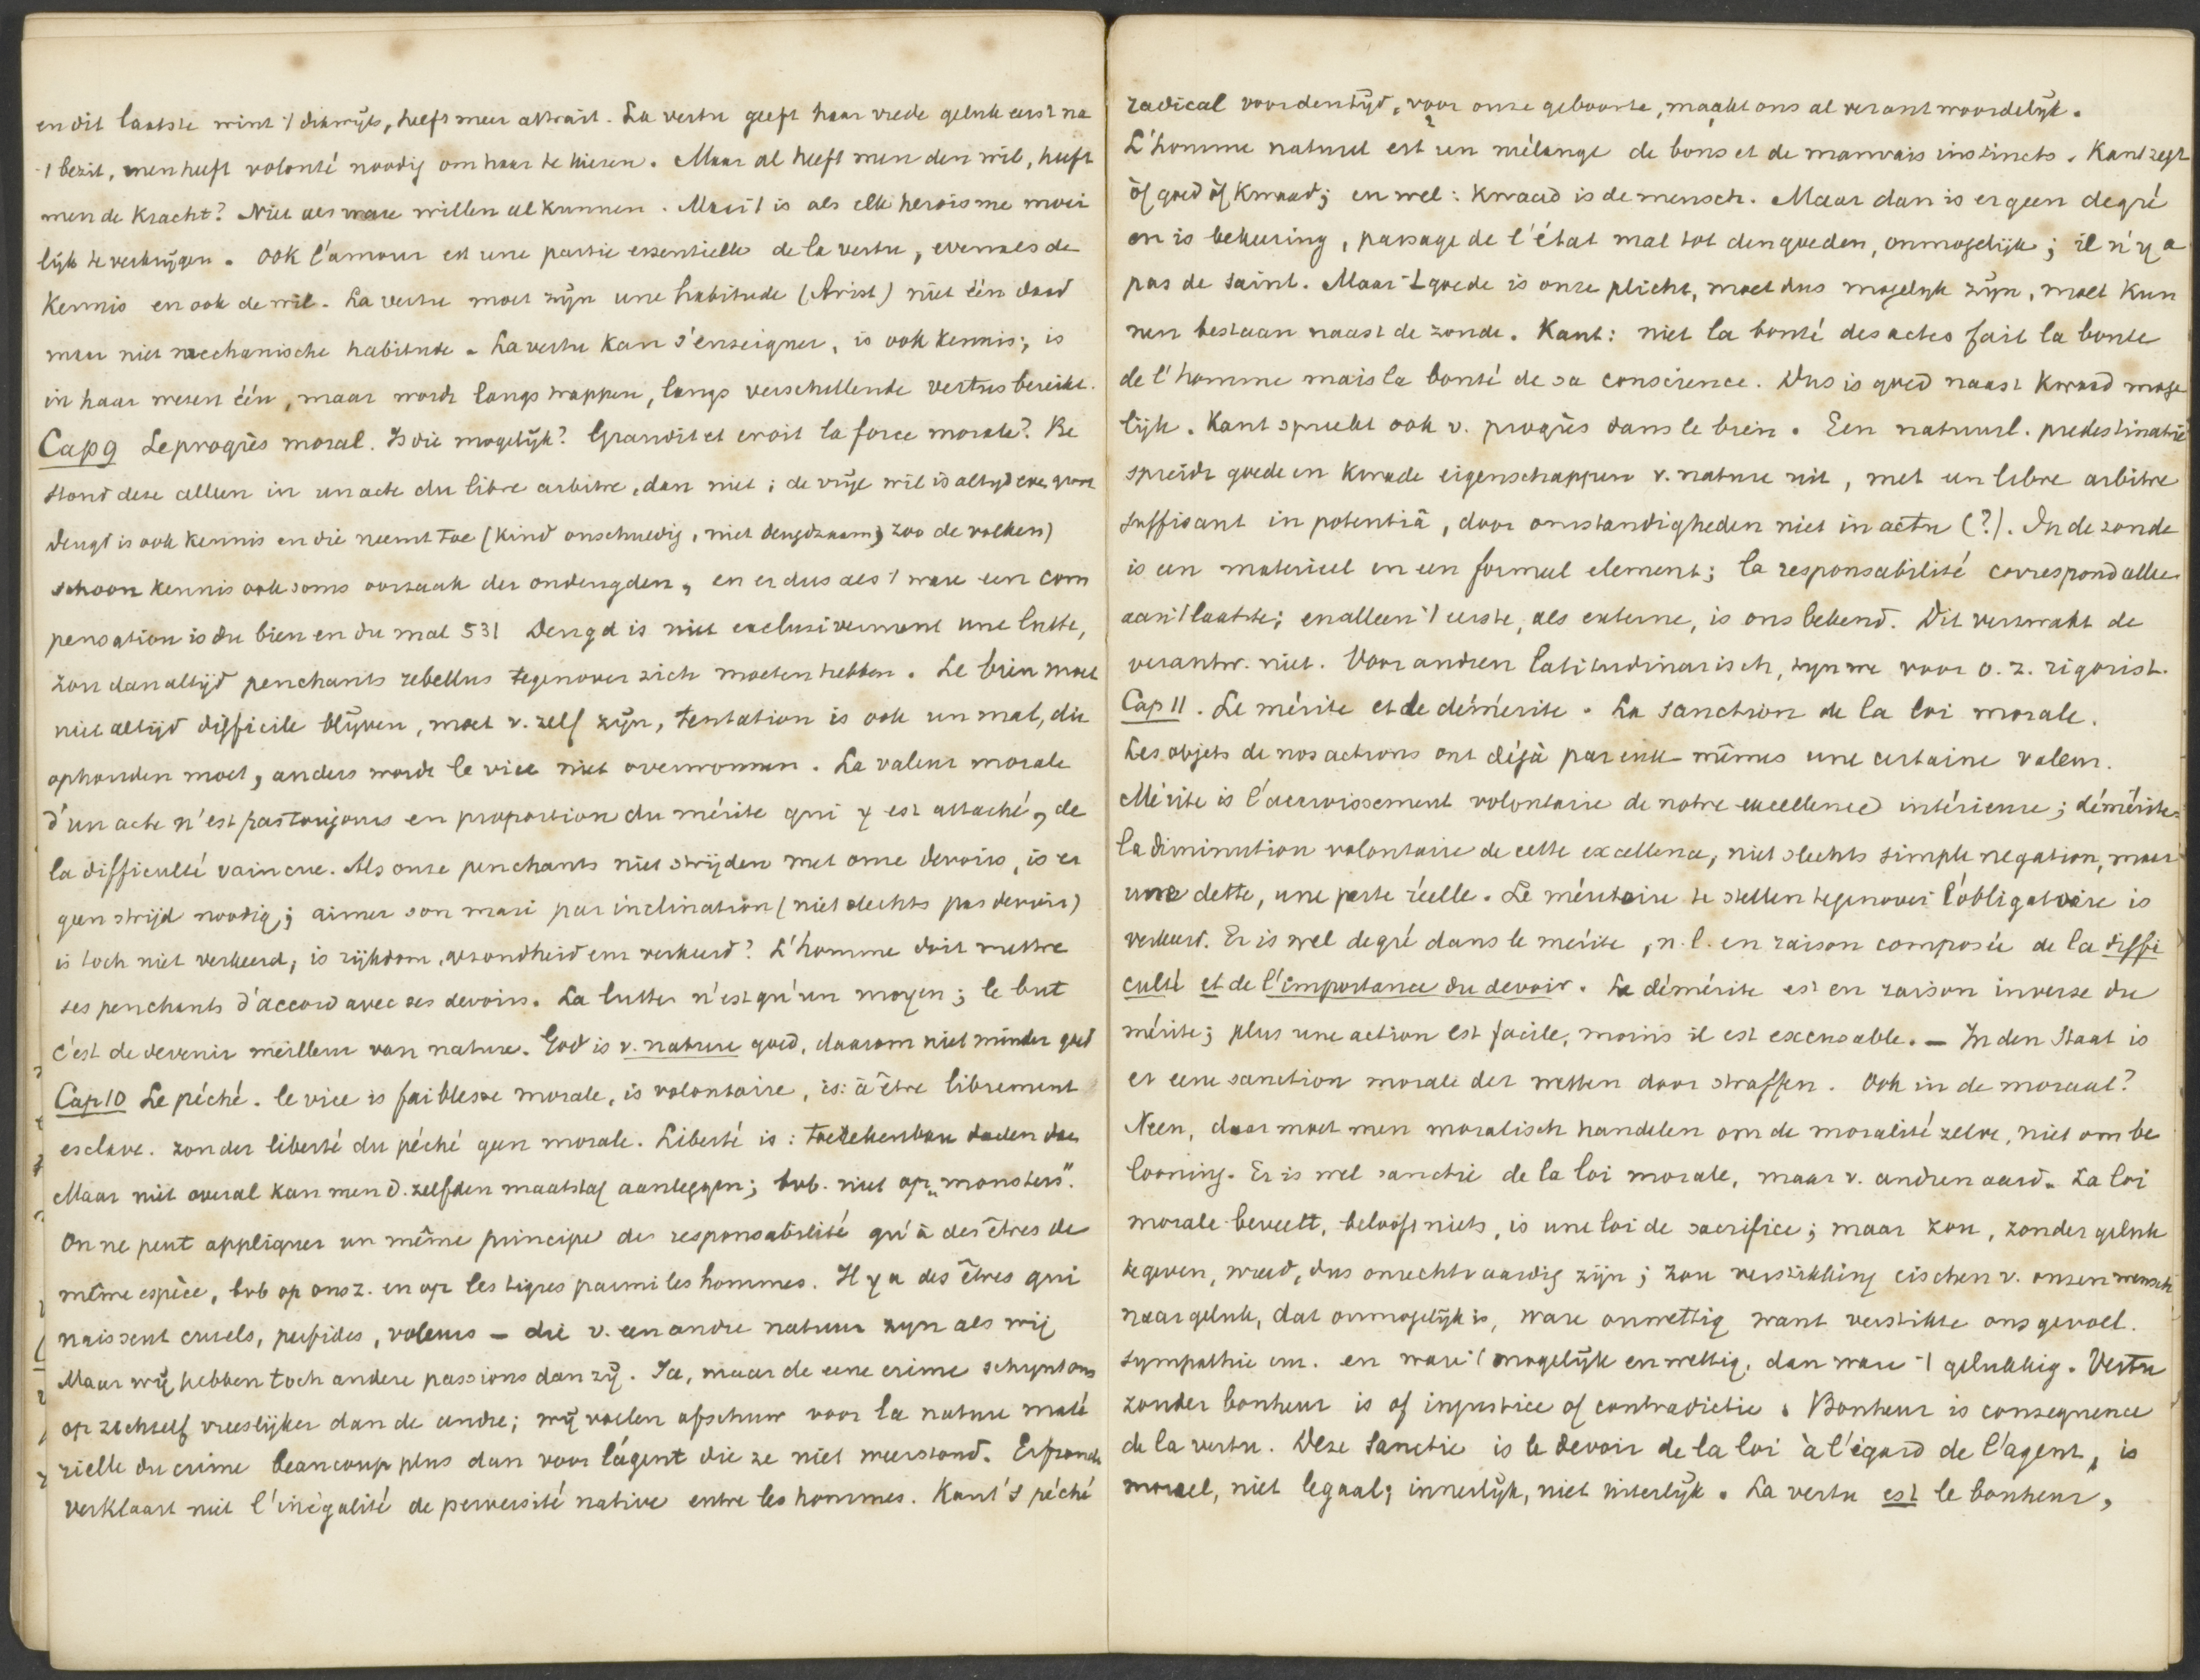 en dit laatste wint 't dikwijls, heeft meer attrait. La vertu geeft haar vrede geluk eerst na
't bezit, men heeft volonté noodig om haar te kiezen. Maar al heeft men den wil, heeft
men de kracht? Niet als ware willen al kunnen. Maar 't is als elk heroisme moei
lijk te verkrijgen. Ook l'amour est une partie essentielle de la vertu, evenals de
kennis en ook de wil. La vertu moet zijn une habitude (Arist) niet één daad
maar niet mechanische habitude. La vertu kan s'enseigner, is ook kennis; is
in haar wezen één, maar wordt langs trappen, langs verschillende vertus bereikt.
Cap 9 Le progrès moral. Is die mogelijk? Grandit et croit la force morale? Be
stond deze alleen in un acte du libre arbitre, dan niet; de vrije wil is altijd even groot
deugd is ook kennis en die neemt toe (kind onschuldig, niet deugdzaam; zoo de volken)
schoon kennis ook soms oorzaak der ondeugden, en er dus als 't ware een com
pensation is du bien en du mal 531 Deugd is niet exclusivement une lutte,
zou dan altijd penchants rebelles tegenover zich moeten hebben. Le bien moet
niet altijd difficile blijven, moet v. zelf zijn, tentation is ook un mal, die
ophouden moet, anders wordt le vice niet overwonnen. La valeur morale
d'un acte n'est pas toujours en proportion du mérite qui y est attaché, de
la difficulté vaincue. Als onze penchants niet strijden met onze devoirs, is er
geen strijd noodig; aimer son mari par inclination (niet slechts par devoir)
is toch niet verkeerd, is rijkdom, gezondheid enz verkeerd? L'homme doit mettre
ses penchants d'accord avec ses devoirs. La lutte n'est qu'un moyen; le but
c'est de devenir meilleur van nature. God is v. nature goed, daarom niet minder goed
Cap 10 Le péché. le vice is faiblesse morale, is volontaire, is: à être librement
esclave. zonder liberté du péché geen morale. Liberté is: toerekenbare daden doen
Maar niet overal kan men d. zelfden maatstaf aanleggen; bvb. niet op „monsters".
On ne peut appliquer un même principe de responsabilité qu'à des êtres de
même espèce, bvb op ons z. en op les tigres parmi les hommes. Il y a des êtres qui
naissent cruels, perfides, voleurs – die v. een andre natuur zijn als wij
Maar wij hebben toch andere passions dan zij. Ja, maar de eene crime schijnt ons
op zichzelf vreeslijker dan de andre; wij voelen afschuw voor la nature maté
rielle du crime beaucoup plus dan voor l'agent die ze niet weerstond. Erfzonde
verklaart niet l'inégalité de perversité native entre les hommes. Kant's péché
radical voordentijd, voor onze geboorte, maakt ons al verantwoordelijk.
L'homme naturel est un mélange de bons et de mauvais instincts. Kant zegt
òf goed òf kwaad; en wel: kwaad is de mensch. Maar dan is er geen degré
en is bekeering, passage de l'état mal tot den goeden, onmogelijk; il n'y a
pas de saint. Maar 't goede is onze plicht, moet dus mogelijk zijn, moet kun
nen bestaan naast de zonde. Kant: niet la bonté des actes fait la bonte
de l'homme mais la bonté de sa conscience. Dus is goed naast kwaad moge
lijk. Kant spreekt ook v. progrès dans le bien. Een natuurl. predestinatie
spreidt goede en kwade eigenschappen v. nature uit, met un libre arbitre
suffisant in potentiâ, door omstandigheden niet in actu (?). In de zonde
is een materieel en een formeel element; la responsabilité correspond alleen
aan 't laatste; en alleen 't eerste, als externe, is ons bekend. Dit verzwakt de
verantw. niet. Voor andren latitudinarisch, zijn we voor o. z. rigorist.
Cap 11. Le mérite et le démérite. La sanction de la loi morale.
Les objets de nos actions ont déjà par eux-mêmes une certaine valeur.
Mérite is l'accroissement volontaire de notre excellence intérieure; démérite =
la diminution volontaire de cette excellence, niet slechts simple negation, maar
une dette, une perte réelle. Le méritoire te stellen tegenover l'obligatoire is
verkeerd. Er is wel degré dans le mérite, n.l. en raison composée de la diffi
culté et de l'importance du devoir. Le démérite est en raison inverse du
mérite; plus une action est facile, moins il est excusable. – In den Staat is
er eene sanction morale der wetten door straffen. Ook in de moraal?
Neen, daar moet men moralisch handelen om de moralité zelve, niet om be
looning. Er is wel sanctie de la loi morale, maar v. andren aard. La loi
morale beveelt, belooft niets, is une loi de sacrifice; maar zou, zonder geluk
te geven, wreed, dus onrechtvaardig zijn; zou verstikking eischen v. onzen wensch
naar geluk, dat onmogelijk is, ware onwettig want verstikte ons gevoel.
sympathie enz. en ware 't mogelijk en wettig, dan ware 't gelukkig. Vertu
zonder bonheur is of injustice of contradictie. Bonheur is consequence
de la vertu. Deze Sanctie is le devoir de la loi à l'égard de l'agent, is
moreel, niet legaal; innerlijk, niet uiterlijk. La vertu est le bonheur,